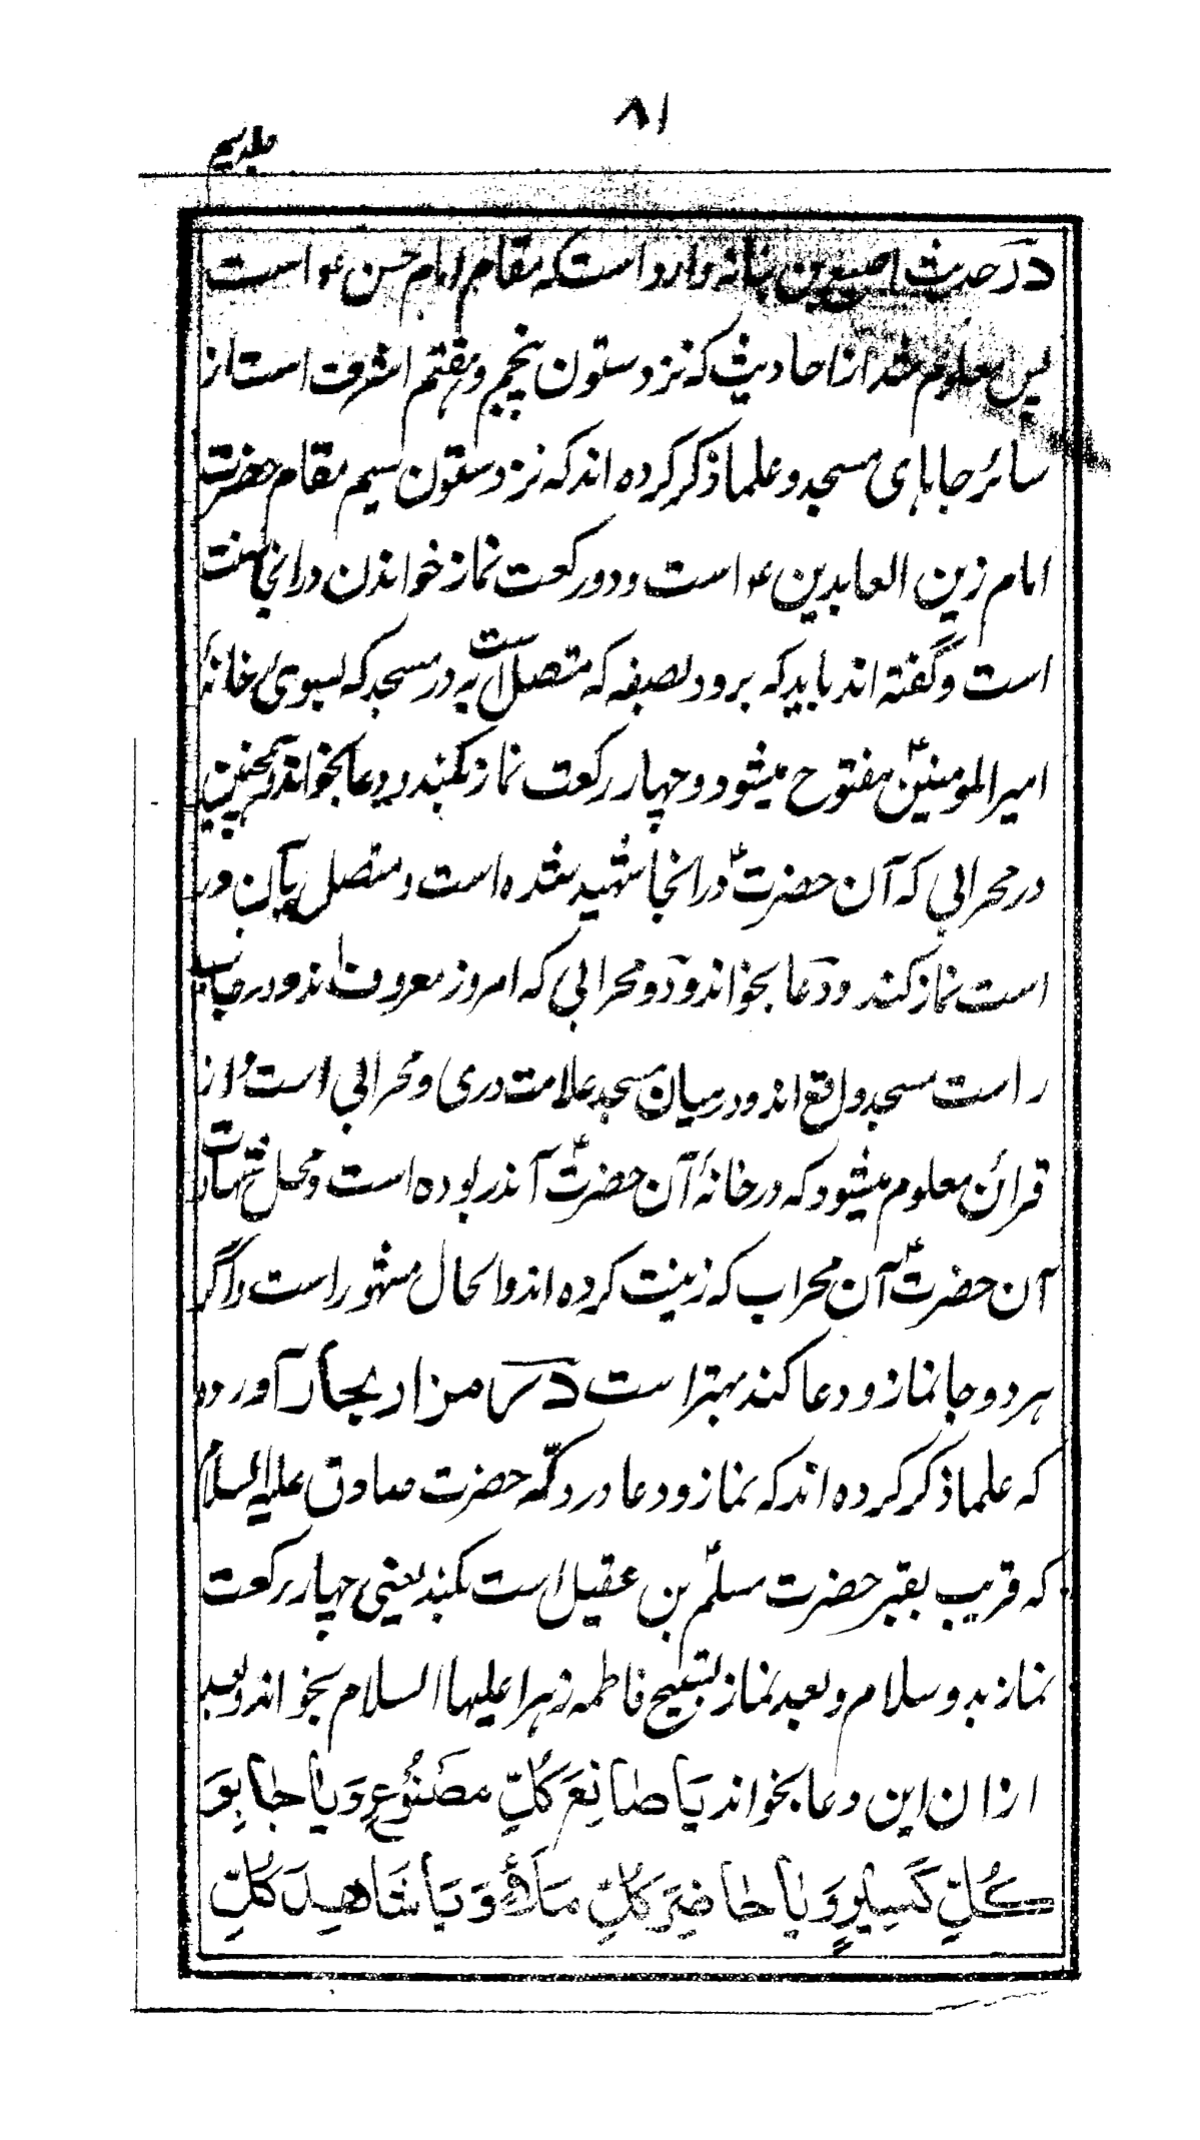 ۸۱
جلد سیم
در حدیث اصبغ بن نباته وارد است که مقام امام حسن ع است
پس معلوم شد از احادیث که نزد ستون پنجم و هفتم اشرف است از
سائر جاهای مسجد و علما ذکر کرده اند که نزد ستون سیم مقام حضرت
امام زین العابدین ع است و دو رکعت نماز خواندن در انجا سنت
است و گفته اند باید که برود بصفه که متصل است به در مسجد که بسوی خانهٔ
امیر المومنینؑ مفتوح میشود و چهار رکعت نماز بکند و دعا بخواند و همچنین
در محرابی که آن حضرتؑ در انجا شهید شده است و متصل بآن در
است نماز کند و دعا بخواند و دو محرابی که امروز معروف اند و در جانب
راست مسجد واقع اند و در میان مسجد علامت دری و محرابی است و از
قرائن معلوم میشود که در خانهٔ آن حضرتؑ آندر بوده است و محل شهادت
آن حضرتؑ آن محراب که زینت کرده اند و الحال مشهور است و اگر
هر دو جا نماز و دعا کند بهتر است در مزار بحار آورده
که علما ذکر کرده اند که نماز و دعا در دکّه حضرت صادق علیه السلام
که قریب بقبر حضرت مسلمؑ بن عقیل است بکند یعنی چهار رکعت
نماز بدو سلام و بعد نماز تسبیح فاطمه زهرا علیها السلام بخواند و بعد
ازان این دعا بخواند یَا صَانِعَ کُلِّ مَصْنُوْعٍ وَیَا جَابِرَ
کُلِّ کَسِیْرٍ وَیَا حَاضِرَ کُلِّ مَلَأٍ وَیَا شَاهِدَ کُلِّ